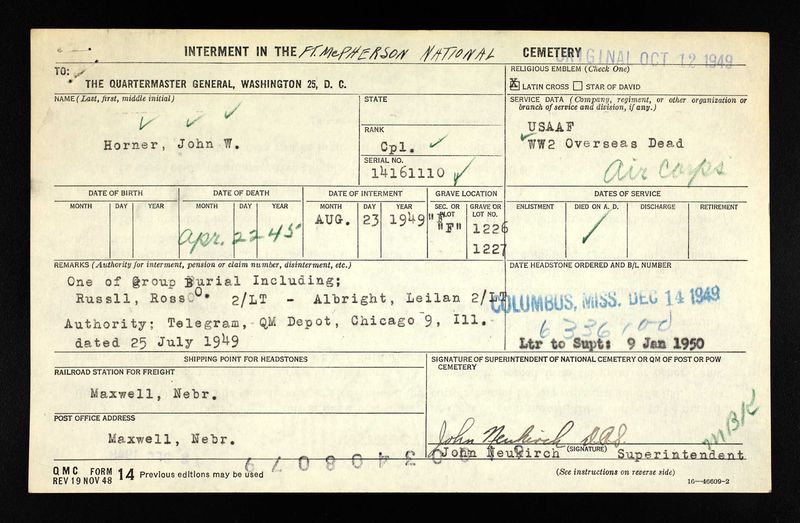 INTERMENT IN THE FT. McPHERSON NATIONAL CEMETERY
ORIGINAL OCT 12 1949
TO:
THE QUARTERMASTER GENERAL, WASHINGTON 25, D. C.
RELIGIOUS EMBLEM (Check One)
X LATIN CROSS STAR OF DAVID
NAME (Last, first, middle initial)
Horner, John W.
STATE
RANK
Cpl.
SERIAL NO.
14161110
SERVICE DATA (Company, regiment, or other organization or branch of service and division, if any.)
USAAF
WW2 Overseas Dead
Air Corps
DATE OF BIRTH DATE OF DEATH DATE OF INTERMENT GRAVE LOCATION DATES OF SERVICE
MONTH DAY YEAR MONTH DAY YEAR MONTH DAY YEAR SEC. OR PLOT GRAVE OR LOT NO. ENLISTMENT DIED ON A. D. DISCHARGE RETIREMENT
Apr. 22 45 AUG. 23 1949 "F" 1226
1227
REMARKS (Authority for interment, pension or claim number, disinterment, etc.)
One of Group Burial Including;
Russll, Ross O. 2/LT - Albright, Leilan 2/LT
Authority; Telegram, QM Depot, Chicago 9, Ill.
dated 25 July 1949
DATE HEADSTONE ORDERED AND B/L NUMBER
COLUMBUS, MISS. DEC 14 1949
Ltr to Supt: 9 Jan 1950
SHIPPING POINT FOR HEADSTONES
RAILROAD STATION FOR FREIGHT
Maxwell, Nebr.
POST OFFICE ADDRESS
Maxwell, Nebr.
SIGNATURE OF SUPERINTENDENT OF NATIONAL CEMETERY OR QM OF POST OR POW CEMETERY
John Neukirch
MBK
John Neukirch (SIGNATURE) Superintendent
QMC FORM 14 Previous editions may be used
REV 19 NOV 48
3408079
(See instructions on reverse side)
16—46609-2